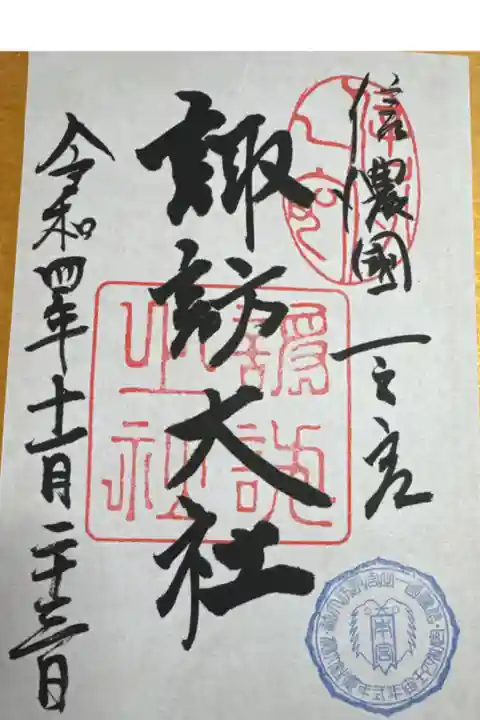 信濃國 一之宮
諏訪大社
令和四年十一月二十三日
本宮